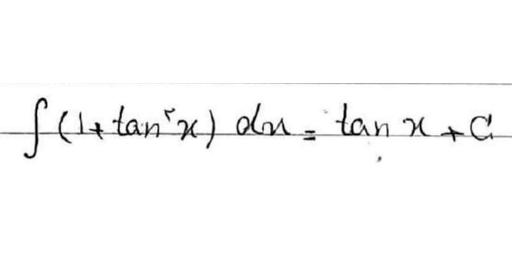 ∫(1+tan²x) dx = tan x + C